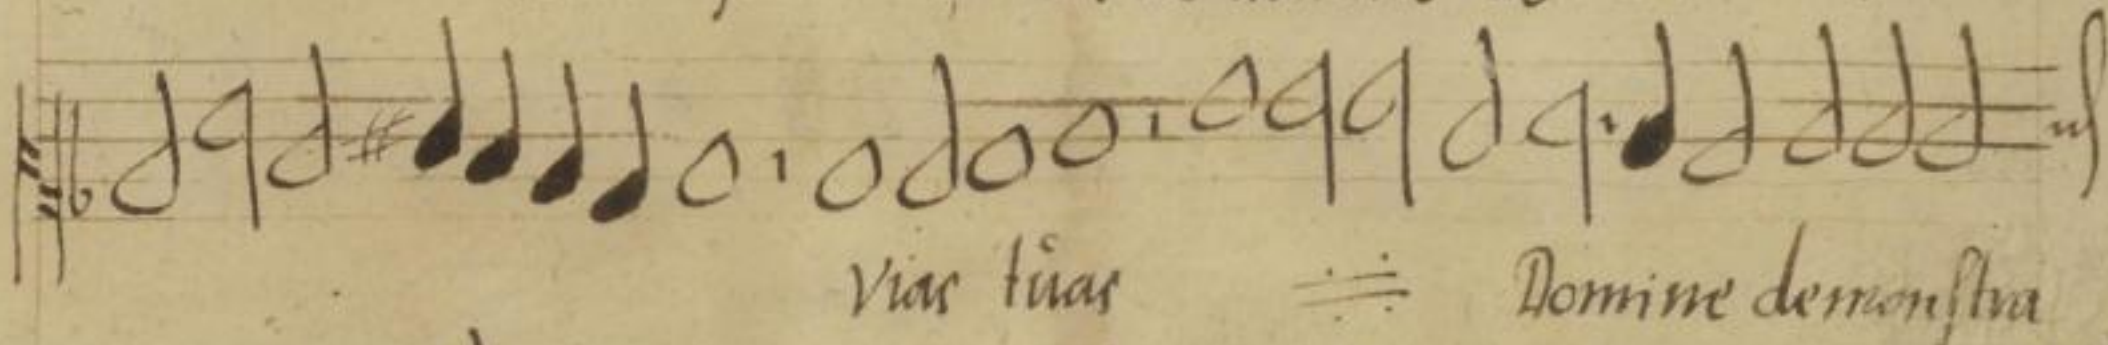 Vias tuas Domine demonstra